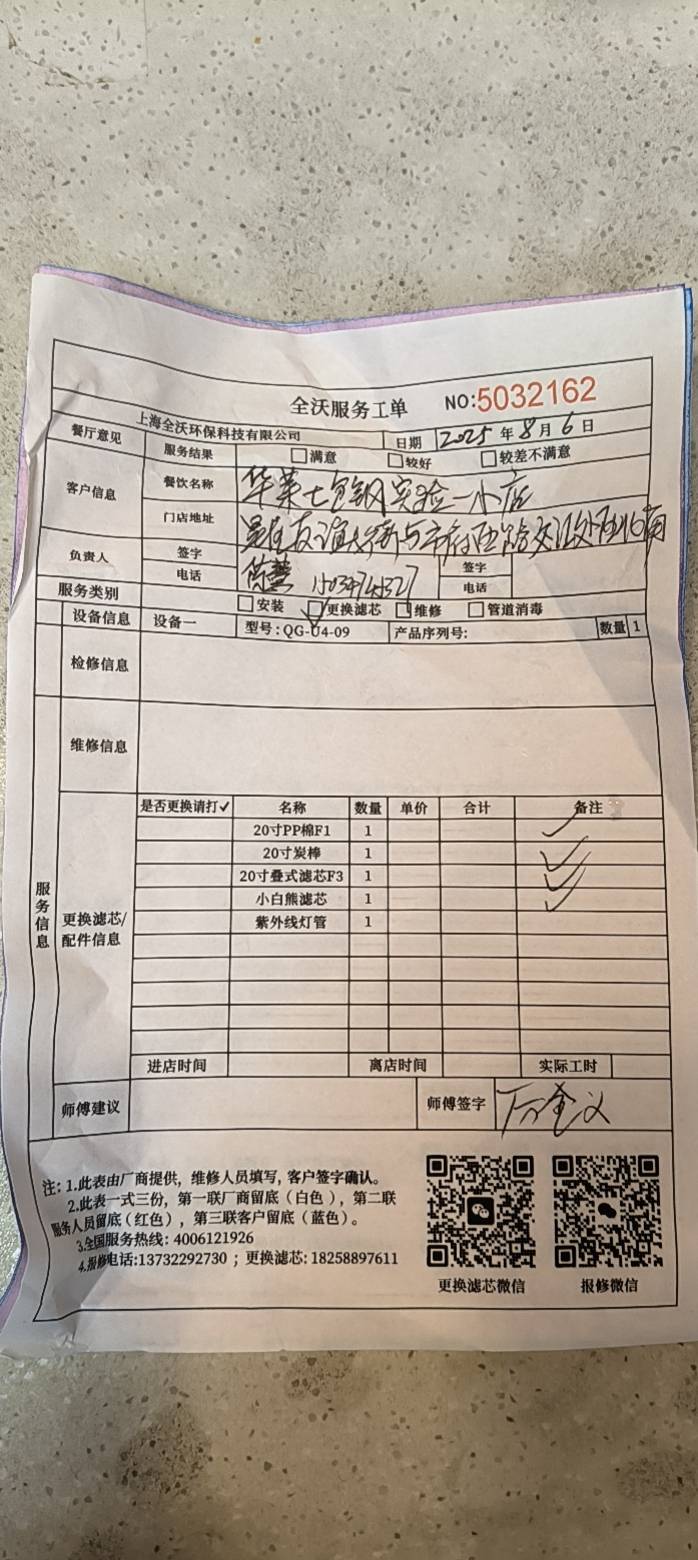 全沃服务工单 NO:5032162
上海全沃环保科技有限公司 日期 2025 年 8 月 6 日
餐厅意见 服务结果 满意 较好 较差不满意
客户信息 餐饮名称 华莱士包钢实验一小店
门店地址 友谊大街与
负责人 签字 签字
电话 电话
服务类别 安装 更换滤芯 ✓ 维修 管道消毒
设备信息 设备一 型号:QG-U4-09 产品序列号: 数量 1
检修信息
维修信息
服务信息
更换滤芯/配件信息
是否更换请打✓ 名称 数量 单价 合计 备注
20寸PP棉F1 1 ✓
20寸炭棒 1 ✓
20寸叠式滤芯F3 1 ✓
小白熊滤芯 1 ✓
紫外线灯管 1
进店时间 离店时间 实际工时
师傅建议 师傅签字
注: 1.此表由厂商提供，维修人员填写，客户签字确认。
2.此表一式三份，第一联厂商留底（白色），第二联
服务人员留底（红色），第三联客户留底（蓝色）。
3.全国服务热线: 4006121926
4.报修电话:13732292730 ; 更换滤芯: 18258897611
更换滤芯微信 报修微信